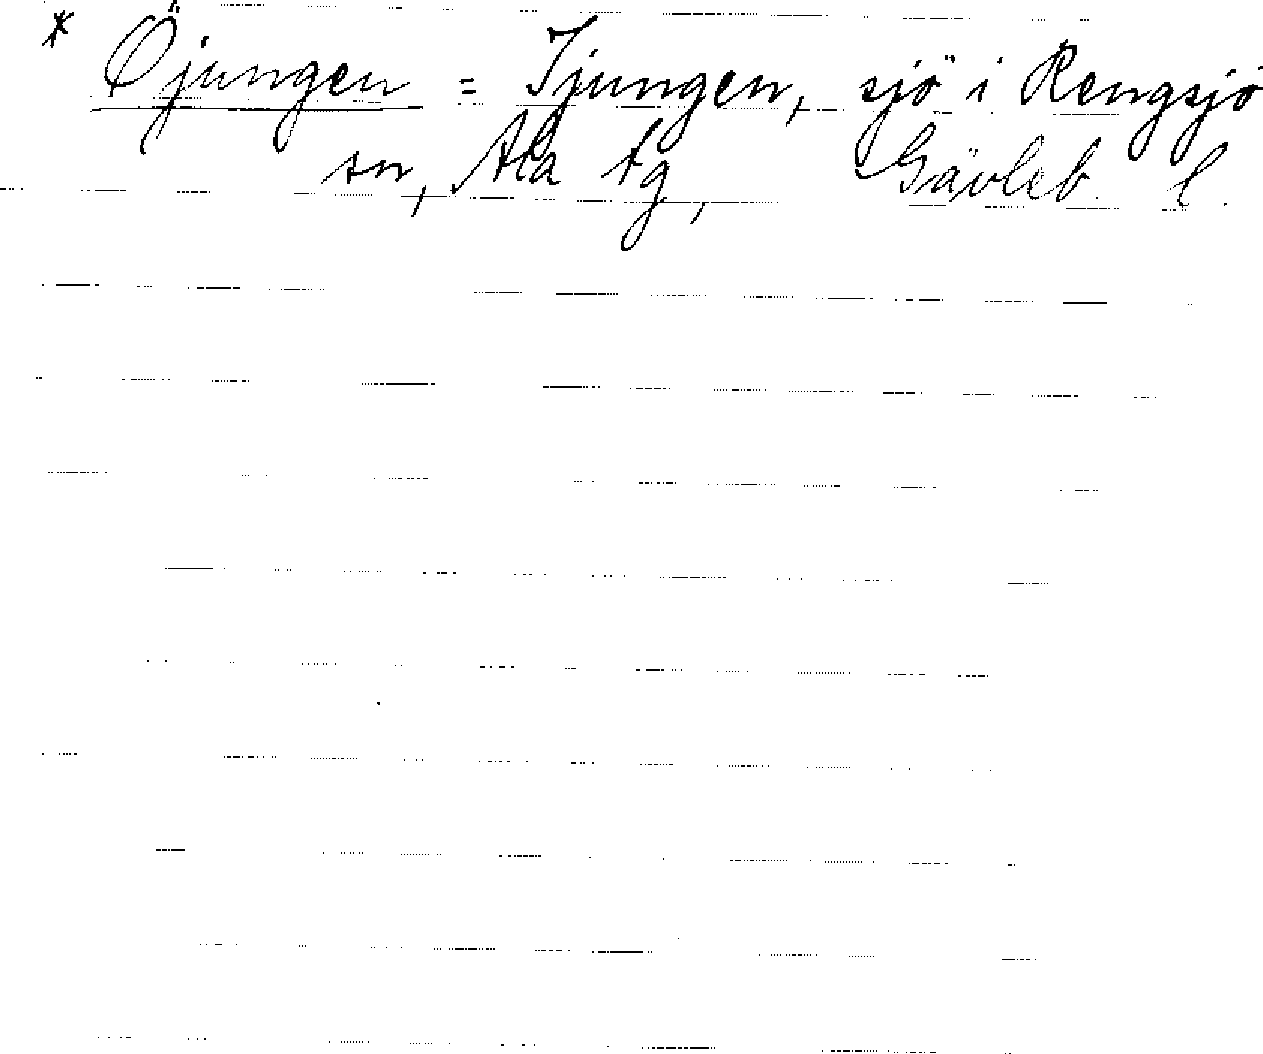 * Öjungen = Ijungen, sjö i Rengsjö
sn, Ala tg, Gävleb. l.